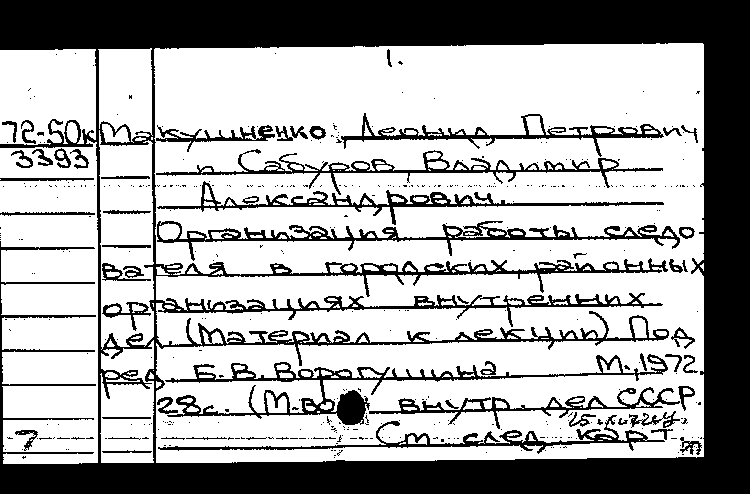 1.
72-50к Макушненко, Леонид Петрович
3393 и Сабуров, Владимир
Александрович.
Организация работы следо-
вателя в городских, районных
организациях внутренних
дел. (Материал к лекции) Под
ред. Б.В. Ворогушина. М., 1972.
28с. (М-во внутр. дел СССР.
7 См. след. карт